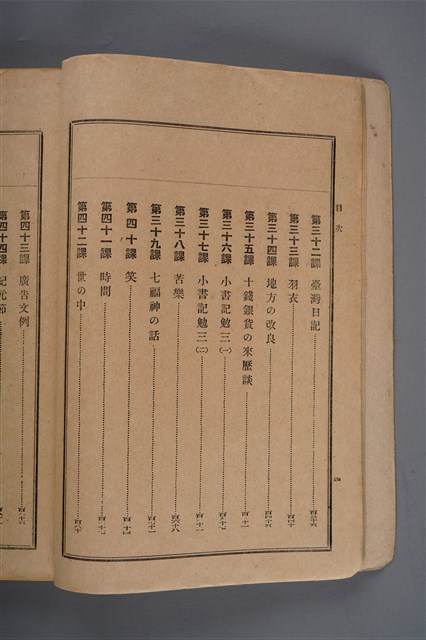 目次
第三十二課 臺灣日記 百三十六
第三十三課 羽衣 百四十
第三十四課 地方の改良 百四十六
第三十五課 十錢銀貨の來歷談
第三十六課 小書記勉三(一)
第三十七課 小書記勉三(二)
第三十八課 苦樂 百六十八
第三十九課 七福神の話
第四十課 笑 百七十四
第四十一課 時間 百七十七
第四十二課 世の中 百八十
第四十三課 廣告文例
第四十四課 紀元節